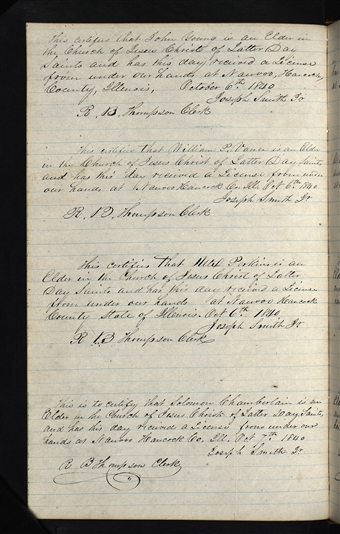 This certifies that John Young is an Elder in
the Church of Jesus Christ of Latter Day
Saints and has this day received a License
from under our hands at Nauvoo, Hancock
County, Illinois, October 6th 1840
Joseph Smith Jr
R. B. Thompson Clerk
This certifies that William P. Vance is an Elder
in the Church of Jesus Christ of Latter Day Saints
and has this day received a License from under
our hands at Nauvoo Hancock Co. Ill. Oct 6th 1840
Joseph Smith Jr
R. B. Thompson Clerk
This certifies that Perkins is an
Elder in the Church of Jesus Christ of Latter
Day Saints and has this day received a License
from under our hands at Nauvoo Hancock
County State of Illinois. Oct 6th 1840,
Joseph Smith Jr
R. B Thompson Clerk
This is to certify that Solomon Chamberlain is an
Elder in the Church of Jesus Christ of Latter Day Saints,
and has this day received a License from under our
hands at Nauvoo Hancock Co. Ill. Oct 7th 1840
Joseph Smith Jr.
R B Thompson Clerk